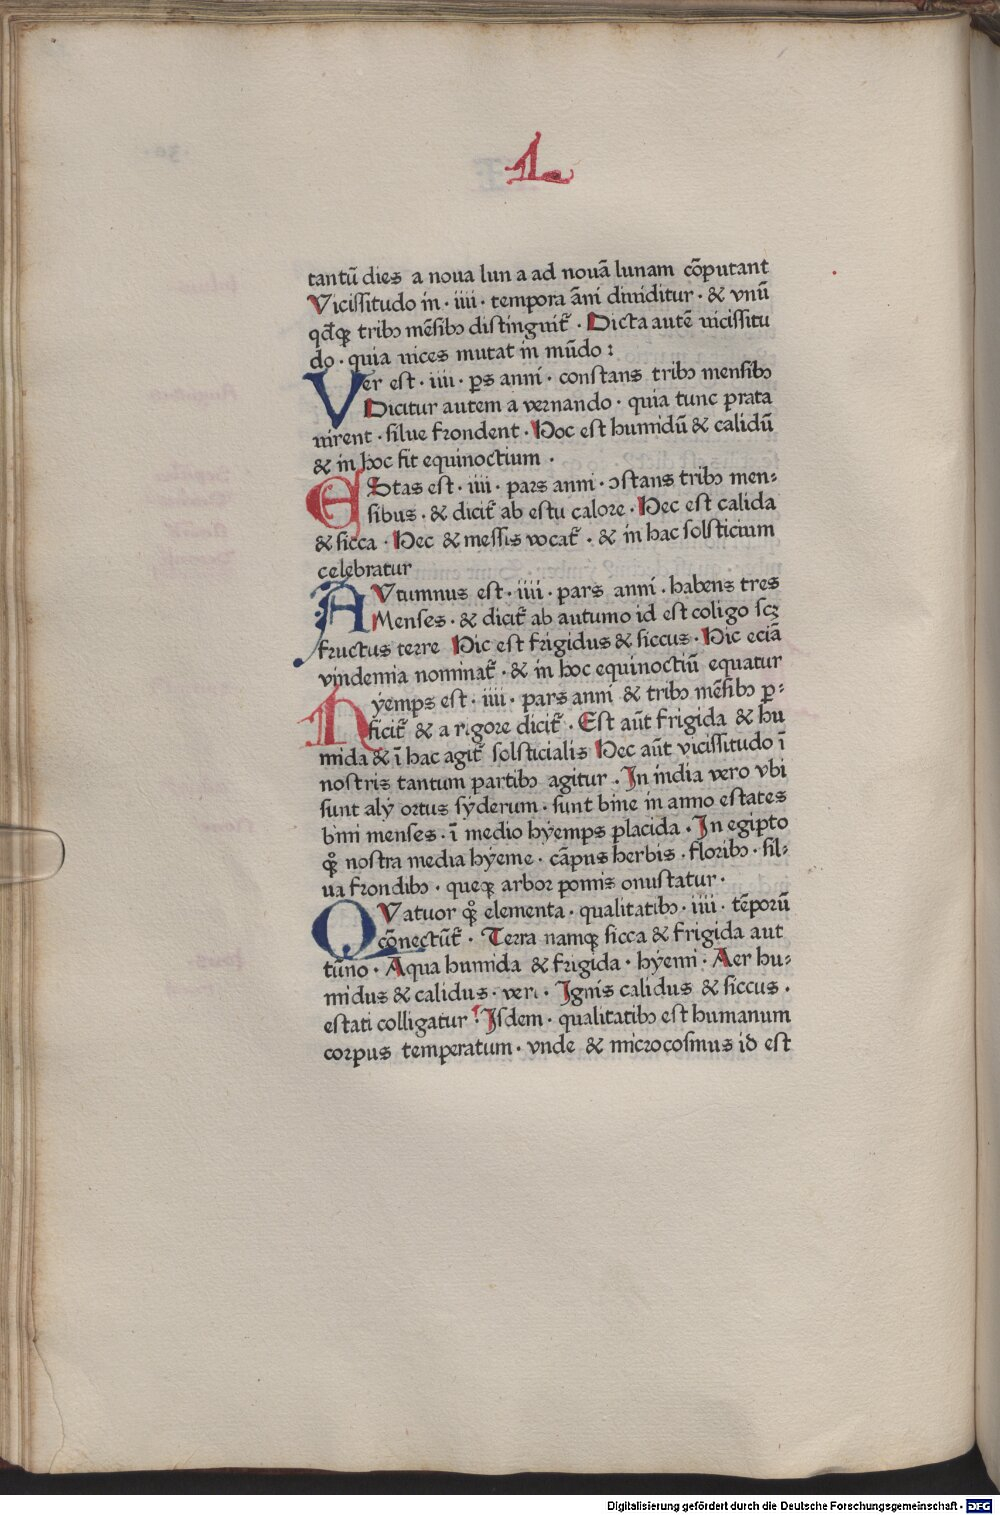 1
tantū dies a noua lun a ad nouā lunam cōputant
Vicissitudo in · iiii · tempora āni diuiditur · & vnū
qd̄qꝫ tribꝫ mēsibꝫ distinguit᷑ · Dicta autē uicissitu
do · quia uices mutat in mūdo :
Ver est · iiii · ꝑs anni · constans tribꝫ mensibꝫ
Dicitur autem a vernando · quia tunc prata
uirent · silue frondent · Hoc est humidū & calidū
& in hoc fit equinoctium ·
EStas est · iiii · pars anni · ɔstans tribꝫ men:
sibus · & dicit᷑ ab estu calore · Hec est calida
& sicca · Hec & messis vocat᷑ · & in hac solsticium
celebratur
AVtumnus est · iiii · pars anni · habens tres
Menses · & dicit᷑ ab autumo id est coligo scꝫ
fructus terre Hic est frigidus & siccus · Hic eciā
vindemia nominat᷑ · & in hoc equinoctiū equatur
Hyemps est · iiii · pars anni & tribꝫ mēsibꝫ ꝑ:
ficit᷑ & a rigore dicit᷑ · Est aūt frigida & hu
mida & ī hac agit᷑ solsticialis Hec aūt vicissitudo ī
nostris tantum partibꝫ agitur · In india vero vbi
sunt alÿ ortus sÿderum · sunt bine in anno estates
bini menses · ī medio hÿemps placida · In egipto
qꝫ nostra media hÿeme · cāpus herbis · floribꝫ · sil:
ua frondibꝫ · queqꝫ arbor pomis onustatur ·
QVatuor qꝫ elementa · qualitatibꝫ · iiii · tēporū
cōnectūt᷑ · Terra namqꝫ sicca & frigida aut
tūno · Aqua humida & frigida · hÿemi · Aer hu:
midus & calidus · veri · Ignis calidus & siccus ·
estati colligatur · Isdem · qualitatibꝫ est humanum
corpus temperatum · vnde & microcosmus id est
Digitalisierung gefördert durch die Deutsche Forschungsgemeinschaft - DFG